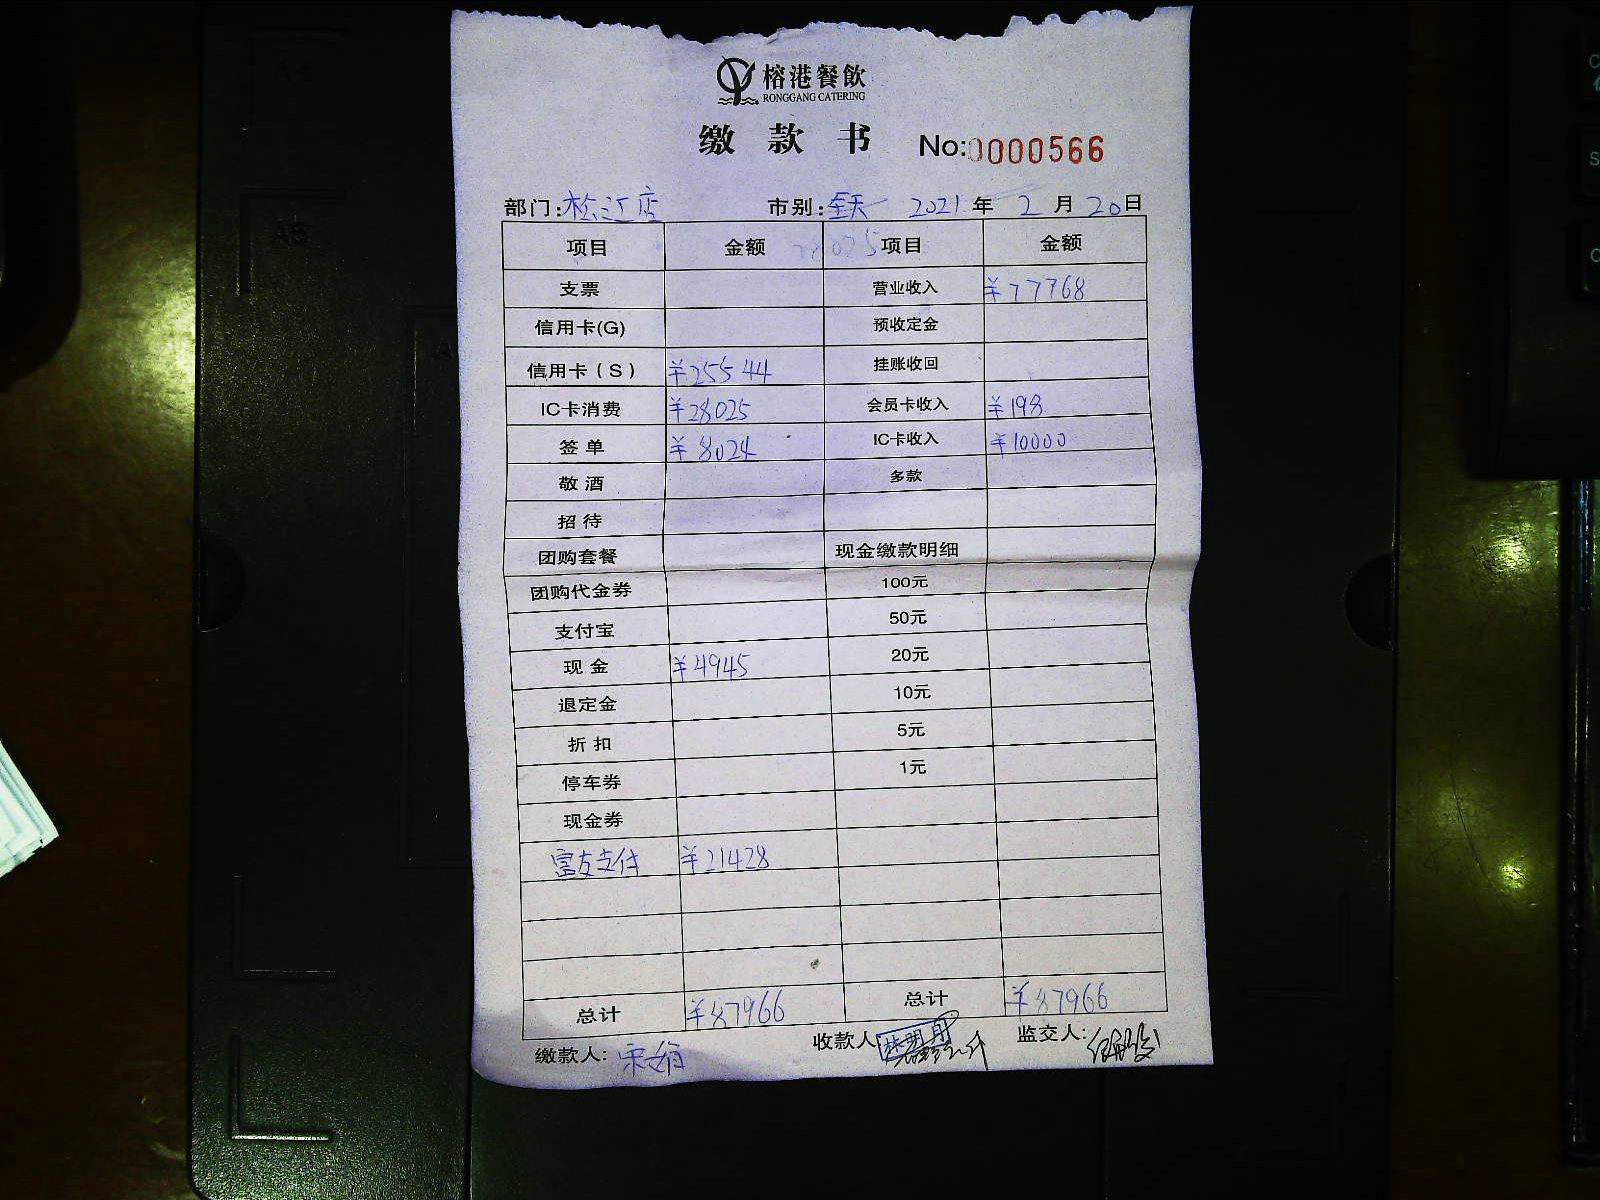 榕港餐飲
RONGGANG CATERING
缴 款 书 No:0000566
部门:松江店 市别:全天 2021年 2月 20日
项目 金额 项目 金额
支票 营业收入 ¥77768
信用卡(G) 预收定金
信用卡(S) ¥25544 挂账收回
IC卡消费 ¥28025 会员卡收入 ¥198
签 单 ¥8024 IC卡收入 ¥10000
敬 酒 多款
招 待
团购套餐 现金缴款明细
团购代金券 100元
支付宝 50元
现 金 ¥4945 20元
退定金 10元
折 扣 5元
停车券 1元
现金券
富友支付 ¥21428
总计 ¥87966 总计 ¥87966
缴款人: 宋娟 收款人 林明月 监交人: